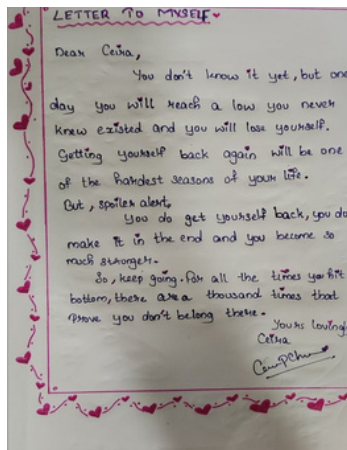 LETTER TO MYSELF
Dear Ceira,
You don't know it yet, but one
day you will reach a low you never
knew existed and you will lose yourself.
Getting yourself back again will be one
of the hardest seasons of your life.
But, spoiler alert,
You do get yourself back, you do
make it in the end and you become so
much stronger.
So, keep going. For all the times you hit
bottom, there are a thousand times that
prove you don't belong there.
Yours loving
Ceira